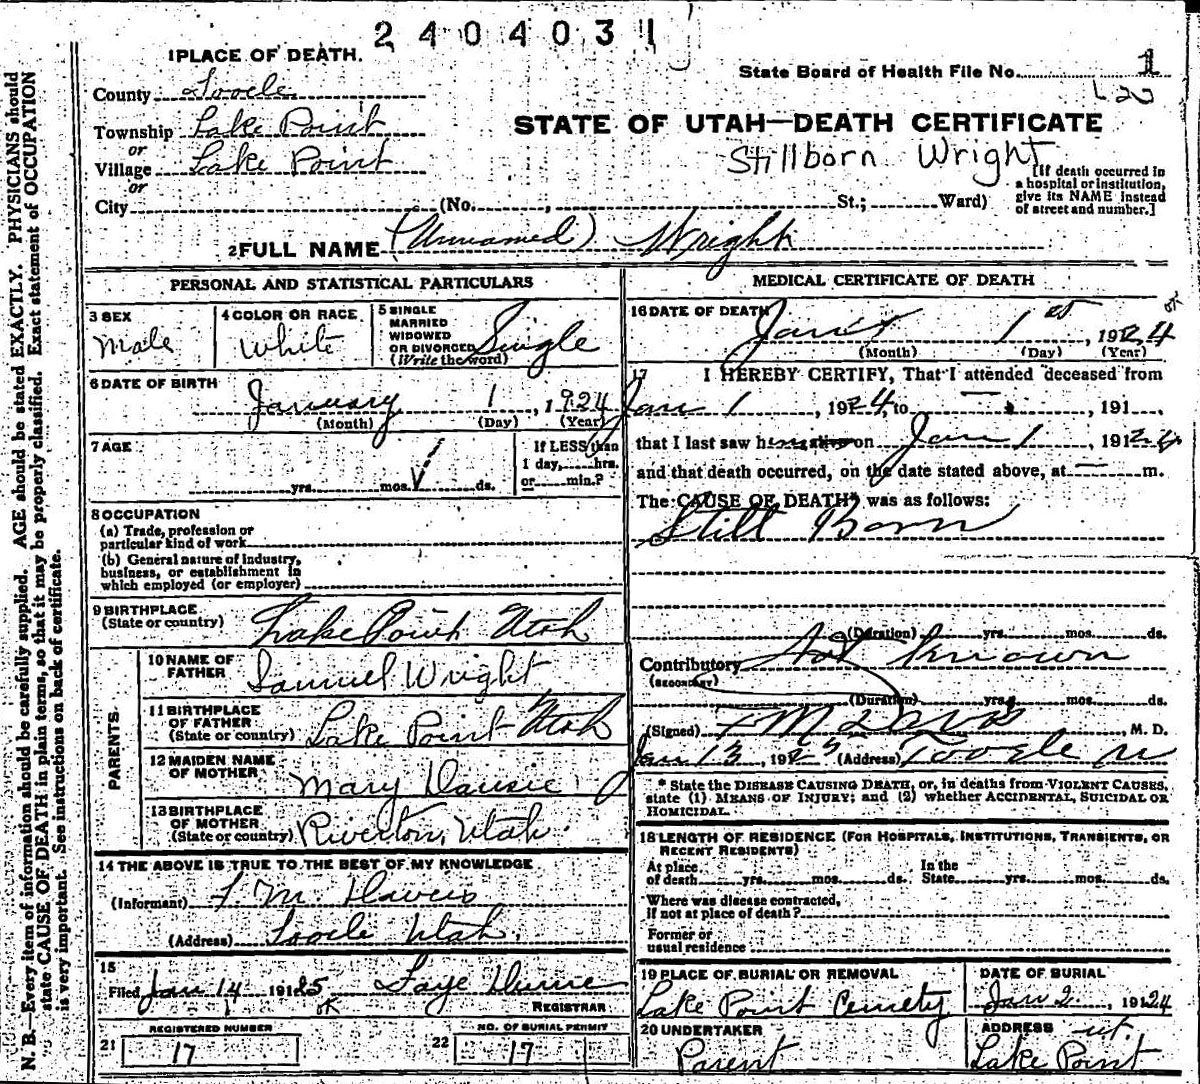 2404031
1 PLACE OF DEATH.
State Board of Health File No. 1
County Tooele
Township Lake Point
STATE OF UTAH—DEATH CERTIFICATE
or
Village Lake Point
Stillborn Wright
or
[If death occurred in
a hospital or institution,
give its NAME instead
of street and number.]
City (No. , St.; Ward)
2 FULL NAME (Unnamed) Wright
PERSONAL AND STATISTICAL PARTICULARS
3 SEX
Male
4 COLOR OR RACE
White
5 SINGLE
MARRIED
WIDOWED
OR DIVORCED
(Write the word)
Single
6 DATE OF BIRTH
January 1, 1924
(Month) (Day) (Year)
7 AGE
yrs. mos. ds.
If LESS than
1 day, hrs.
or min.?
8 OCCUPATION
(a) Trade, profession or
particular kind of work
(b) General nature of industry,
business, or establishment in
which employed (or employer)
9 BIRTHPLACE
(State or country) Lake Point Utah
PARENTS
10 NAME OF
FATHER Samuel Wright
11 BIRTHPLACE
OF FATHER
(State or country) Lake Point Utah
12 MAIDEN NAME
OF MOTHER Mary
13 BIRTHPLACE
OF MOTHER
(State or country) Riverton, Utah.
14 THE ABOVE IS TRUE TO THE BEST OF MY KNOWLEDGE
(Informant) F. M. Davis
(Address) Tooele Utah.
15
Filed Jan 14 19125 Faye
OK REGISTRAR
REGISTERED NUMBER
21 17
NO. OF BURIAL PERMIT
22 17
MEDICAL CERTIFICATE OF DEATH
16 DATE OF DEATH
1st, 1924 OK
(Month) (Day) (Year)
17 I HEREBY CERTIFY, That I attended deceased from
Jan 1, 1924, to — , 191 ,
that I last saw h alive on Jan 1, 1924
and that death occurred, on the date stated above, at — m.
The CAUSE OF DEATH* was as follows:
Still Born
(Duration) yrs. mos. ds.
Contributory Not Known
(SECONDARY)
(Duration) yrs. mos. ds.
(Signed) F M Davis, M. D.
Jan 13, 1925 (Address) Tooele U
* State the DISEASE CAUSING DEATH, or, in deaths from VIOLENT CAUSES,
state (1) MEANS OF INJURY; and (2) whether ACCIDENTAL, SUICIDAL OR
HOMICIDAL.
18 LENGTH OF RESIDENCE (FOR HOSPITALS, INSTITUTIONS, TRANSIENTS, OR
RECENT RESIDENTS)
At place
of death yrs. mos. ds.
In the
State yrs. mos. ds.
Where was disease contracted,
if not at place of death?
Former or
usual residence
19 PLACE OF BURIAL OR REMOVAL
Lake Point Cemetry
DATE OF BURIAL
Jan 2, 19124
20 UNDERTAKER
Parent
ADDRESS ut.
Lake Point
N. B.—Every item of information should be carefully supplied. AGE should be stated EXACTLY. PHYSICIANS should
state CAUSE OF DEATH in plain terms, so that it may be properly classified. Exact statement of OCCUPATION
is very important. See instructions on back of certificate.